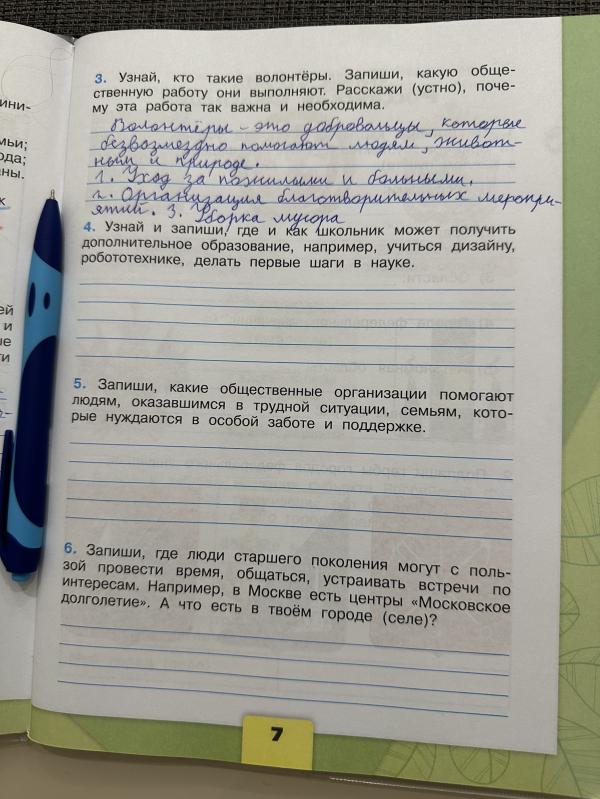 3. Узнай, кто такие волонтёры. Запиши, какую обще-
ственную работу они выполняют. Расскажи (устно), поче-
му эта работа так важна и необходима.
Волонтёры - это добровольцы, которые
безвозмездно помогают людям, живот-
ным и природе.
1. Уход за пожилыми и больными.
2. Организация благотворительных меропри-
ятий. 3. Уборка мусора
4. Узнай и запиши, где и как школьник может получить
дополнительное образование, например, учиться дизайну,
робототехнике, делать первые шаги в науке.
5. Запиши, какие общественные организации помогают
людям, оказавшимся в трудной ситуации, семьям, кото-
рые нуждаются в особой заботе и поддержке.
6. Запиши, где люди старшего поколения могут с поль-
зой провести время, общаться, устраивать встречи по
интересам. Например, в Москве есть центры «Московское
долголетие». А что есть в твоём городе (селе)?
7